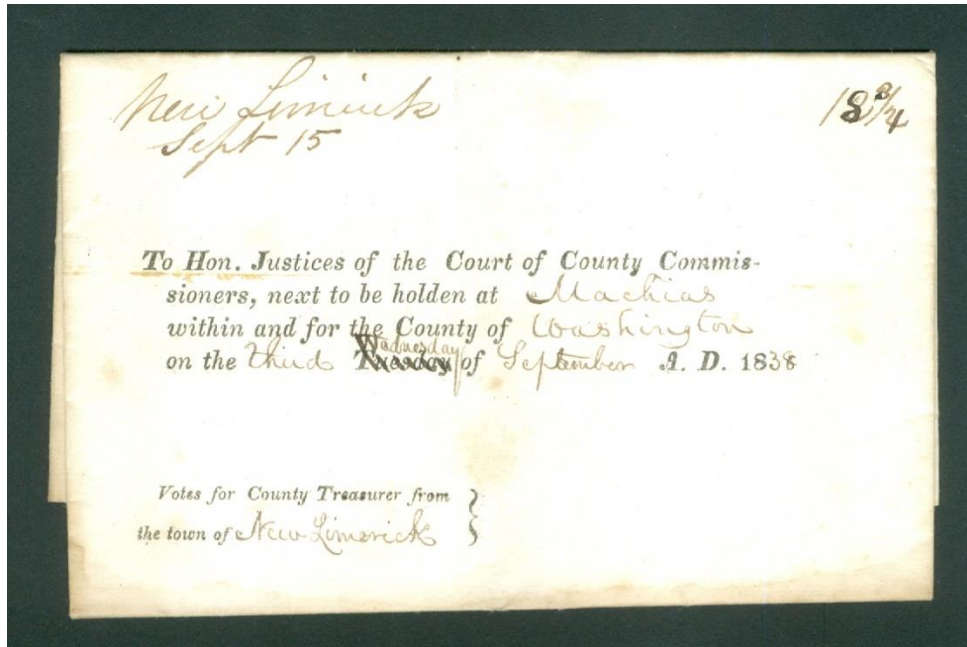 New Limerick
Sept 15
18 3/4
To Hon. Justices of the Court of County Commis-
sioners, next to be holden at Machias
within and for the County of Washington
on the third Tuesday Wednesday of September A. D. 1838
Votes for County Treasurer from
the town of New Limerick